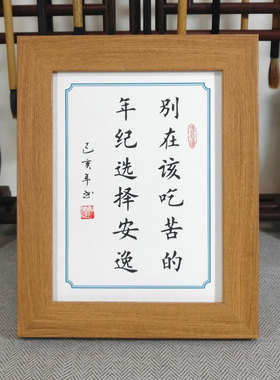 别在该吃苦的
年纪选择安逸
己亥年书